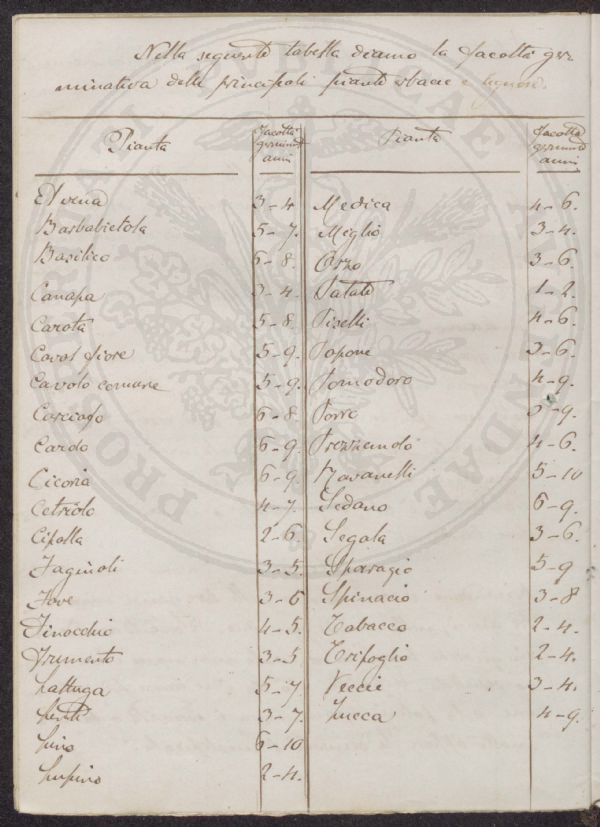 Nella seguente tabella diamo la facoltà ger
minativa delle principali piante erbacee e lignose.
Pianta Facoltà germinat anni Pianta Facoltà germinat anni
Avena 3-4 Medica 4-6.
Barbabietola 5-7. Meglio 3-4.
Basilico 6-8. Orzo 3-6.
Canapa 3-4. Patate 1-2.
Carota 5-8 Piselli 4-6.
Cavol fiore 5-9. Popone 5-6.
Cavolo comune 5-9. Pomodoro 4-9.
Carciofo 6-8 Porro 5-9.
Cardo 6-9. Prezzemolo 4-6.
Cicoria 6-9. Ravanelli 5-10
Cetriolo 4-7. Sedano 6-9.
Cipolla 2-6. Segala 3-6.
Faginoli 3-5. Sparagio 5-9
Fave 3-6 Spinacio 3-8
Finocchio 4-5. Tabacco 2-4.
Frumento 3-5 Trifoglio 2-4.
Lattuga 5-7. Veccie 3-4.
Lenti 3-7. Zucca 4-9.
Lino 6-10
Lupino 2-4.
PROBITATI DOCTRINAE AUGENDAE